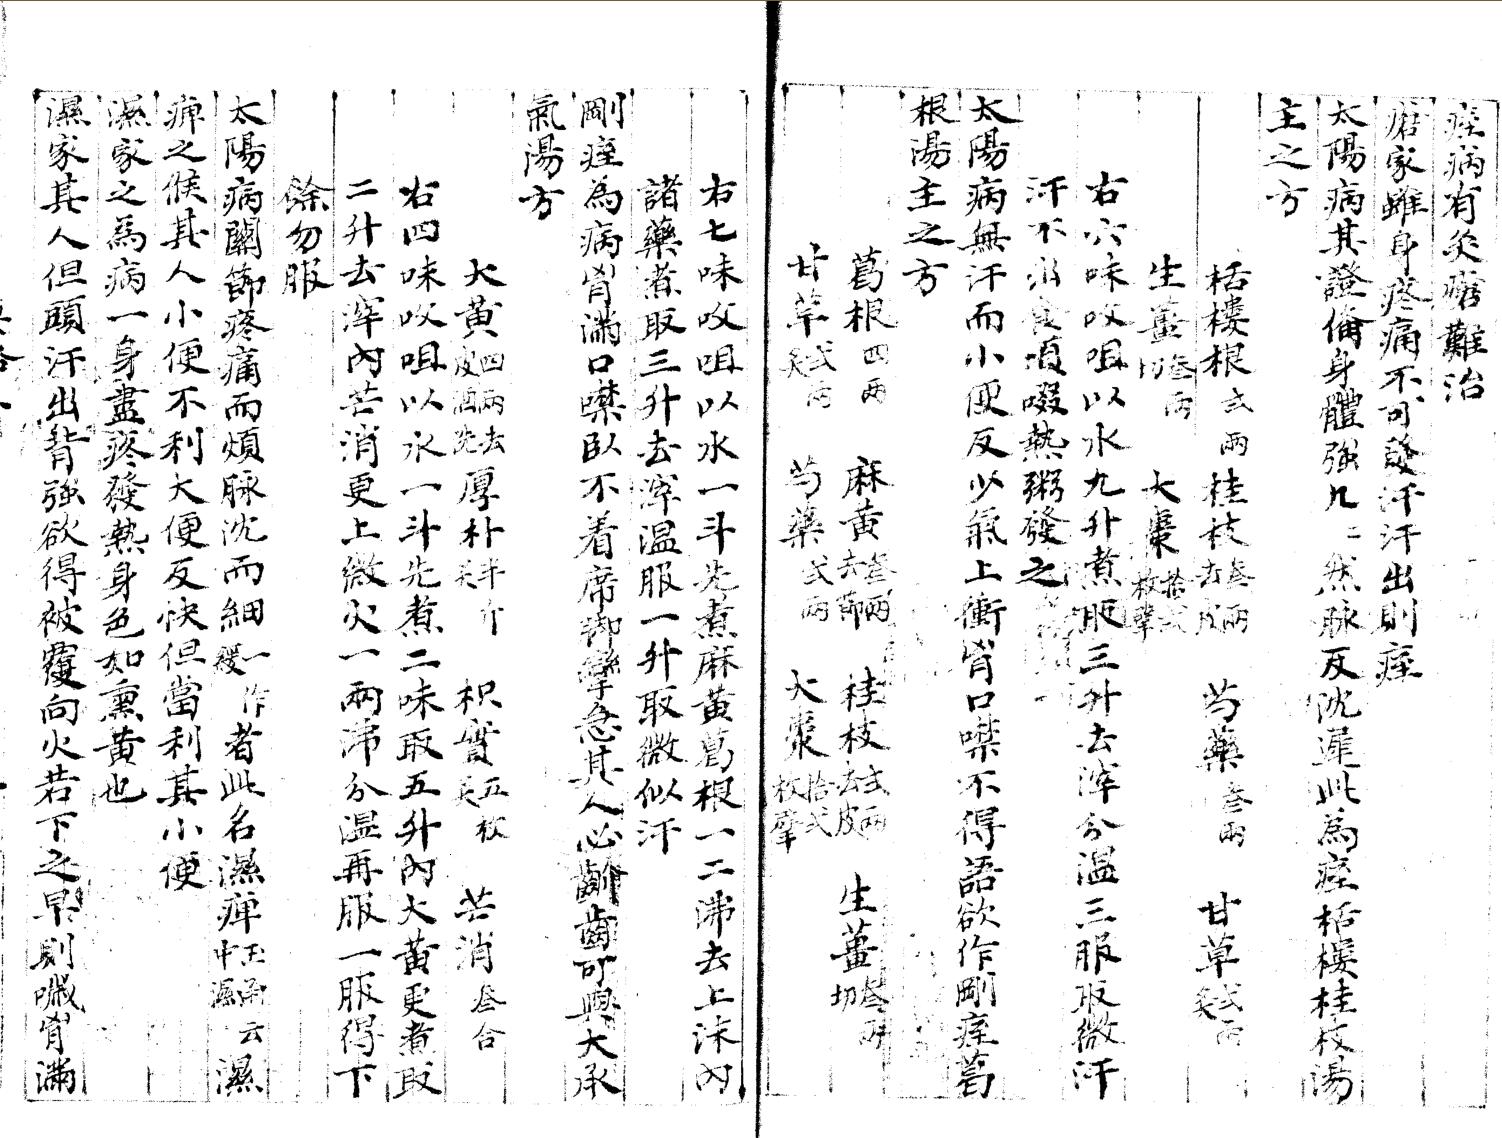 痓病有灸瘡難治
瘡家雖身疼痛不可發汗汗出則痓
太陽病其證俻身體强几〻然脉反沈遲此為痓栝樓桂枝湯
主之方
栝樓根弍兩 桂枝叁兩去皮 芍藥叁兩 甘草弍兩炙
生薑叁兩切 大棗拾弍枚擘
右六味㕮咀以水九升煮取三升去滓分温三服取微汗
汗不出食頃啜熱粥發之
太陽病無汗而小便反少氣上衝胷口噤不得語欲作剛痓葛
根湯主之方
葛根四兩 麻黄叁兩去節 桂枝弍兩去皮 生薑叁兩切
甘草弍兩炙 芍藥弍兩 大棗拾弍枚擘
右七味㕮咀以水一斗先煮麻黄葛根一二沸去上沫内
諸藥煮取三升去滓温服一升取微似汗
剛痓為病胷滿口噤臥不着席脚攣急其人必齘齒可與大承
氣湯方
大黄四兩去皮酒洗 厚朴半斤炙 枳實五枚炙 芒消叁合
右四味㕮咀以水一斗先煮二味取五升内大黄更煮取
二升去滓内芒消更上微火一兩沸分温再服一服得下
餘勿服
太陽病關節疼痛而煩脉沈而細一作緩者此名濕痺玉函云中濕濕
痺之候其人小便不利大便反快但當利其小便
濕家之為病一身盡疼發熱身色如熏黄也
濕家其人但頭汗出背强欲得被覆向火若下之早則噦胷滿